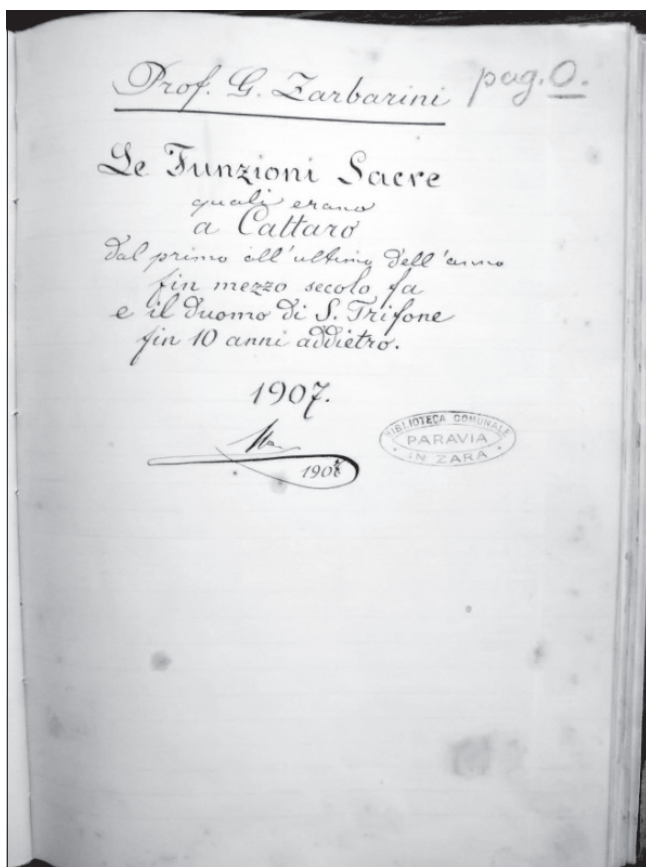 Prof. G. Zarbarini pag. 0.
Le Funzioni Sacre
quali erano
a Cattaro
dal primo all'ultimo dell'anno
fin mezzo secolo fa
e il Duomo di S. Trifone
fin 10 anni addietro.
1907.
BIBLIOTECA COMUNALE
PARAVIA
IN ZARA